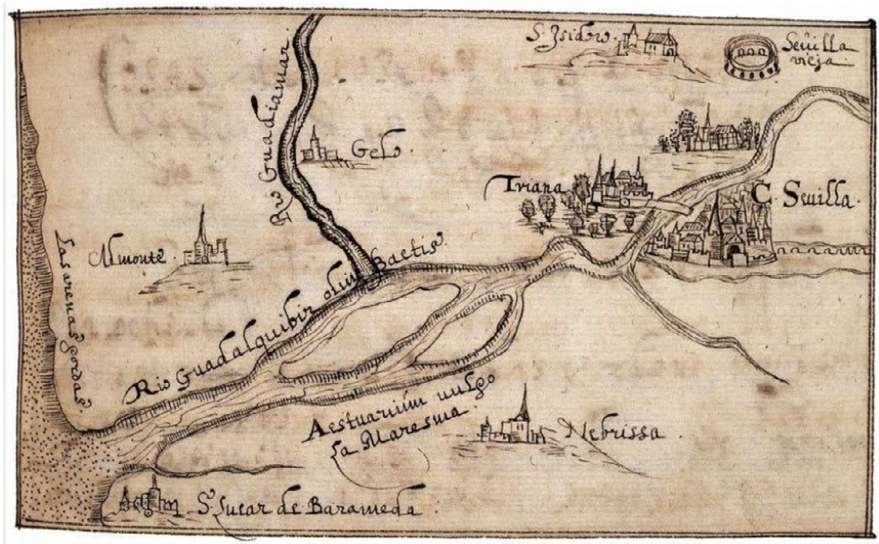 S. Isidoro.
Sevilla
vieja.
Rio Guadiamar.
Gelo
Triana
C Sevilla.
Almonte.
Las arenas gordas.
Rio Guadalquibir olim Baetis.
Aestuarium vulgo
La Maresma.
Nebrissa.
S. Lucar de Barameda.